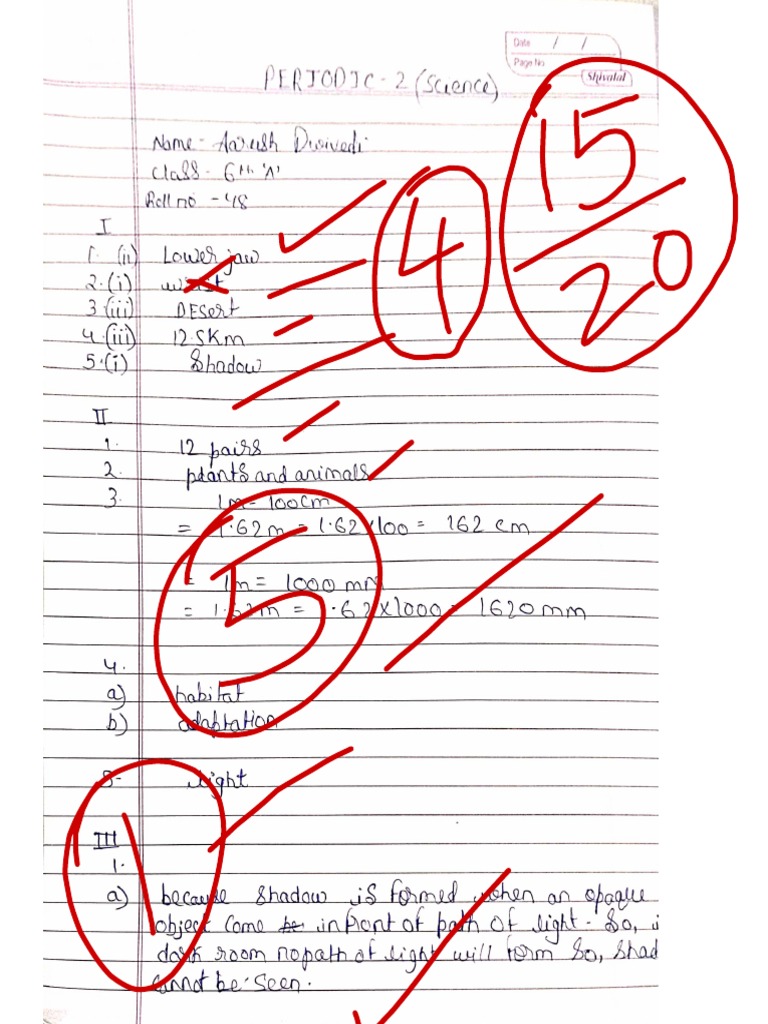 Date / /
Page No
Shivalal
PERIODIC - 2 (Science)
15/20
Name - Aarush Dwivedi
Class - 6th 'A'
Roll no - 48
4
I
1. (ii) Lower jaw
2. (i) wrist
3 (iii) Desert
4. (iii) 12.5Km
5. (i) Shadow
II
1. 12 pairs
2. plants and animals
3. 1m = 100cm
= 1.62m = 1.62x100 = 162 cm
= 1m = 1000 mm
= 1.62m = 1.62x1000 = 1620mm
5
4.
a) habitat
b) adaptation
5. light
1
III
1.
a) because shadow is formed when an opaque
object come in front of path of light. So, i
dark room no path of light will form So, shad
cannot be seen.